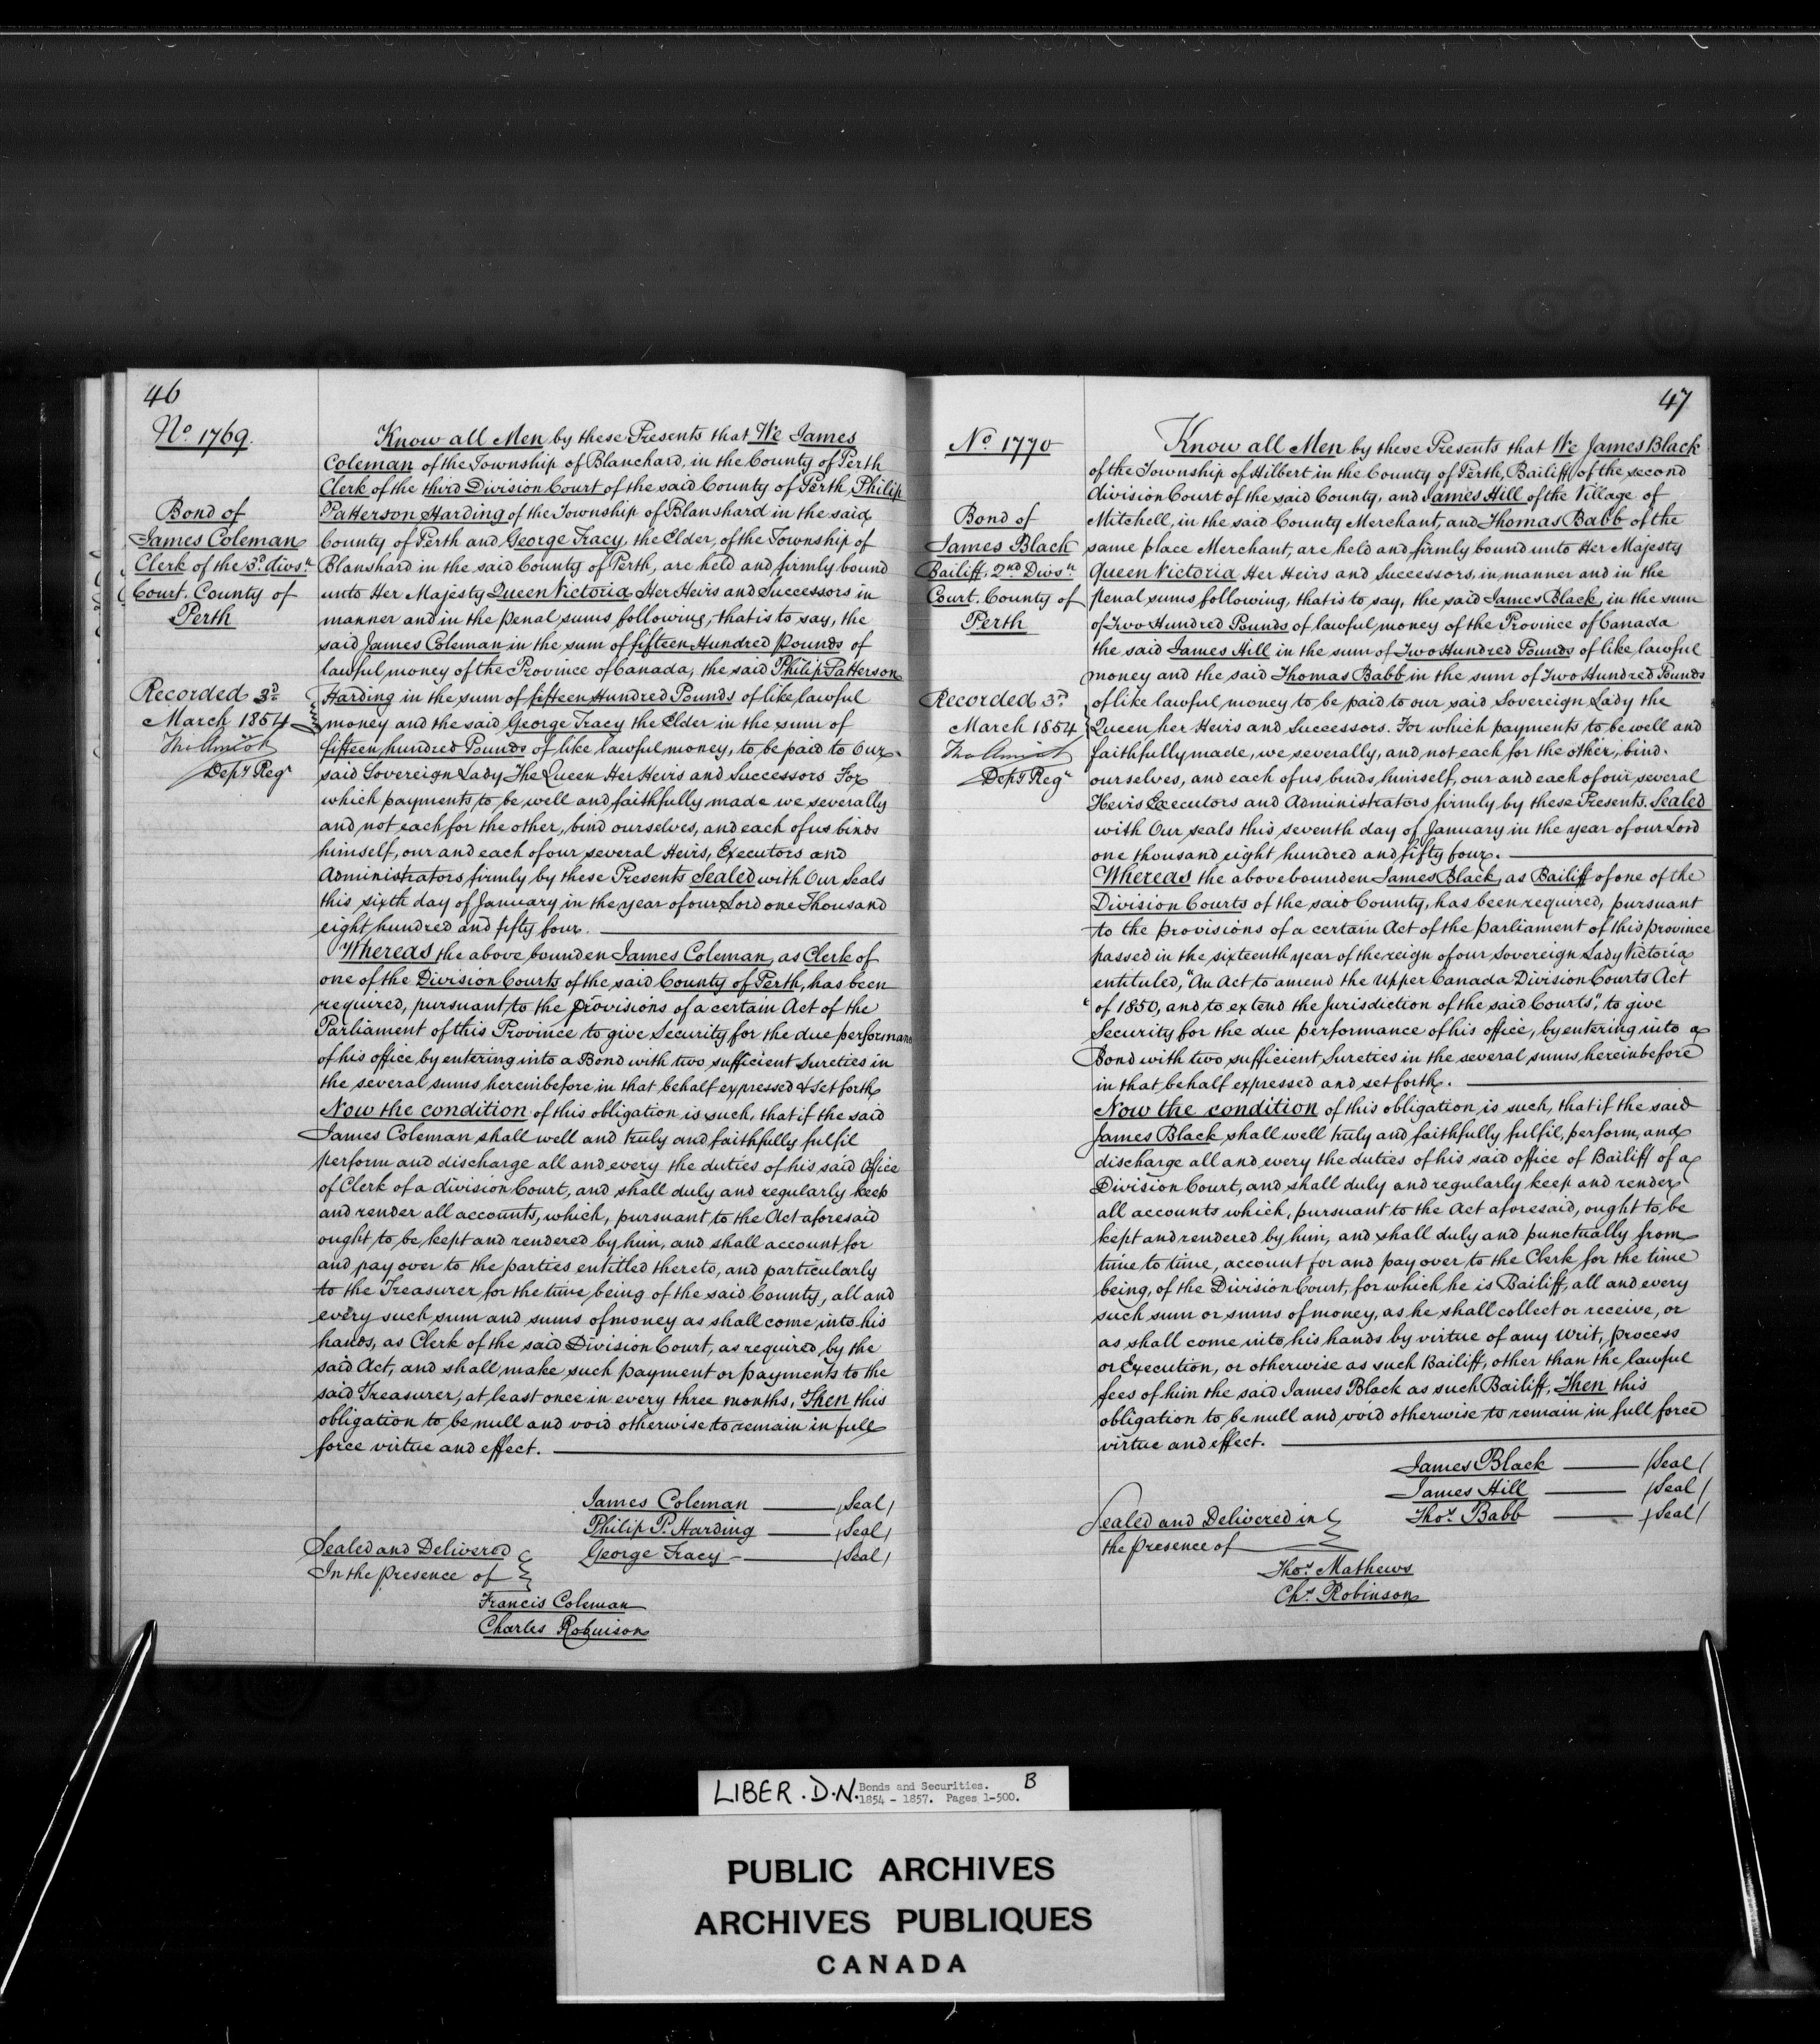 46
No. 1769.
Bond of
James Coleman
Clerk of the 3d. divsn
Court. County of
Perth
Recorded 3d
March 1854
Tho Amiot
Depy Regr
Know all Men by these Presents that We James
Coleman of the Township of Blanchard, in the County of Perth
Clerk of the third Division Court of the said County of Perth Philip
Patterson Harding of the Township of Blanshard in the said
County of Perth and George Tracy, the Elder, of the Township of
Blanshard in the said County of Perth, are held and firmly bound
unto Her Majesty Queen Victoria, Her Heirs and Successors in
manner and in the penal sums following; that is to say, the
said James Coleman in the sum of fifteen Hundred pounds of
lawful money of the Province of Canada, the said Philip Patterson
Harding in the sum of fifteen Hundred Pounds of like lawful
money and the said George Tracy the Elder in the sum of
fifteen hundred Pounds of like lawful money, to be paid to Our
said Sovereign Lady The Queen Her Heirs and Successors For
which payments, to be well and faithfully made we severally
and not each for the other, bind ourselves, and each of us binds
himself, our and each of our several Heirs, Executors and
Administrators firmly by these Presents Sealed with Our Seals
this sixth day of January in the year of our Lord one Thousand
eight hundred and fifty four.
Whereas the above bounden James Coleman, as Clerk of
one of the Division Courts of the said County of Perth, has been
required, pursuant to the provisions of a certain Act of the
Parliament of this Province to give Security for the due performanc
of his office by entering into a Bond with two sufficient Sureties in
the several sums hereinbefore in that behalf expressed & set forth
Now the condition of this obligation is such, that if the said
James Coleman shall well and truly and faithfully fulfil
perform and discharge all and every the duties of his said Office
of Clerk of a division Court, and shall duly and regularly keep
and render all accounts, which, pursuant to the Act aforesaid
ought to be kept and rendered by him, and shall account for
and pay over to the parties entitled thereto, and particularly
to the Treasurer for the time being of the said County, all and
every such sum and sums of money as shall come into his
hands, as Clerk of the said Division Court, as required by the
said Act, and shall make such payment or payments to the
said Treasurer, at least once in every three months, Then this
obligation to be null and void otherwise to remain in full
force virtue and effect.
James Coleman (Seal)
Philip P. Harding (Seal)
George Tracy (Seal)
Sealed and Delivered
In the presence of
Francis Coleman
Charles Robinson
47
No 1770
Bond of
James Black
Bailiff, 2nd Divsn
Court, County of
Perth
Recorded 3d
March 1854
Tho Amiot
Depy Regr
Know all Men by these Presents that We James Black
of the Township of Hilbert in the County of Perth, Bailiff of the second
division Court of the said County, and James Hill of the Village of
Mitchell, in the said County Merchant, and Thomas Babb of the
same place Merchant, are held and firmly bound unto Her Majesty
Queen Victoria Her Heirs and Successors, in manner and in the
penal sums following, that is to say, the said James Black, in the sum
of Two Hundred Pounds of lawful money of the Province of Canada
the said James Hill in the sum of Two Hundred Pounds of like lawful
money and the said Thomas Babb in the sum of Two Hundred Pounds
of like lawful money to be paid to our said Sovereign Lady the
Queen her Heirs and Successors. For which payments to be well and
faithfully made, we severally, and not each for the other, bind
ourselves, and each of us, binds himself, our and each of our several
Heirs Executors and Administrators firmly by these Presents. Sealed
with Our seals this seventh day of January in the year of our Lord
one thousand eight hundred and fifty four.
Whereas the above bounden James Black, as Bailiff of one of the
Division Courts of the said County, has been required, pursuant
to the provisions of a certain Act of the parliament of this province
passed in the sixteenth year of the reign of our Sovereign Lady Victoria
entituled, "An Act to amend the Upper Canada Division Courts Act
"of 1850, and to extend the Jurisdiction of the said Courts", to give
Security for the due performance of his office, by entering into a
Bond with two sufficient Sureties in the several sums hereinbefore
in that behalf expressed and set forth.
Now the condition of this obligation is such, that if the said
James Black shall well truly and faithfully fulfil, perform, and
discharge all and every the duties of his said office of Bailiff of a
Division Court, and shall duly and regularly keep and render
all accounts which, pursuant to the Act aforesaid, ought to be
kept and rendered by him, and shall duly and punctually from
time to time, account for and pay over to the Clerk for the time
being, of the Division Court, for which he is Bailiff, all and every
such sum or sums of money, as he shall collect or receive, or
as shall come into his hands by virtue of any Writ, process
or Execution, or otherwise as such Bailiff, other than the lawful
fees of him the said James Black as such Bailiff, Then this
obligation to be null and void otherwise to remain in full force
virtue and effect.
James Black (Seal)
James Hill (Seal)
Thos. Babb (Seal)
Sealed and Delivered in
the presence of
Thos. Mathews
Chs. Robinson
LIBER. D.N. Bonds and Securities. B
1854 - 1857. Pages 1-500.
PUBLIC ARCHIVES
ARCHIVES PUBLIQUES
CANADA